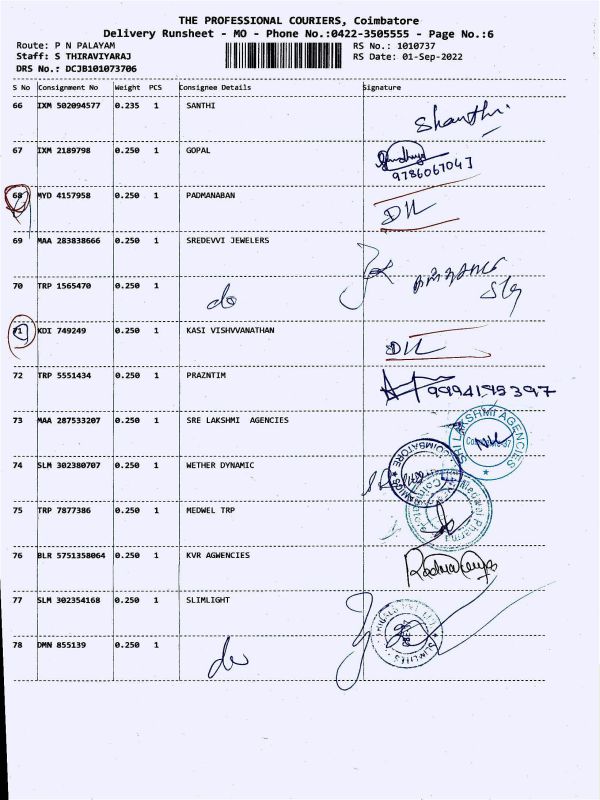 THE PROFESSIONAL COURIERS, Coimbatore
Delivery Runsheet - MO - Phone No.:0422-3505555 - Page No.:6
Route: P N PALAYAM
Staff: S THIRAVIYARAJ
DRS No.: DCJB101073706
RS No.: 1010737
RS Date: 01-Sep-2022
S No Consignment No Weight PCS Consignee Details Signature
66 IXM 502094577 0.235 1 SANTHI Shanthi
67 IXM 2189798 0.250 1 GOPAL
68 MYD 4157958 0.250 1 PADMANABAN DIL
69 MAA 283838666 0.250 1 SREDEVVI JEWELERS
70 TRP 1565470 0.250 1 do
71 KDI 749249 0.250 1 KASI VISHVVANATHAN DIL
72 TRP 5551434 0.250 1 PRAZNTIM
73 MAA 287533207 0.250 1 SRE LAKSHMI AGENCIES LAKSHMI AGENCIES
74 SLM 302380707 0.250 1 WETHER DYNAMIC COIMBATORE
75 TRP 7877386 0.250 1 MEDWEL TRP Medwel Pharma
76 BLR 5751358064 0.250 1 KVR AGWENCIES
77 SLM 302354168 0.250 1 SLIMLIGHT SLIMLITES
78 DMN 855139 0.250 1 do